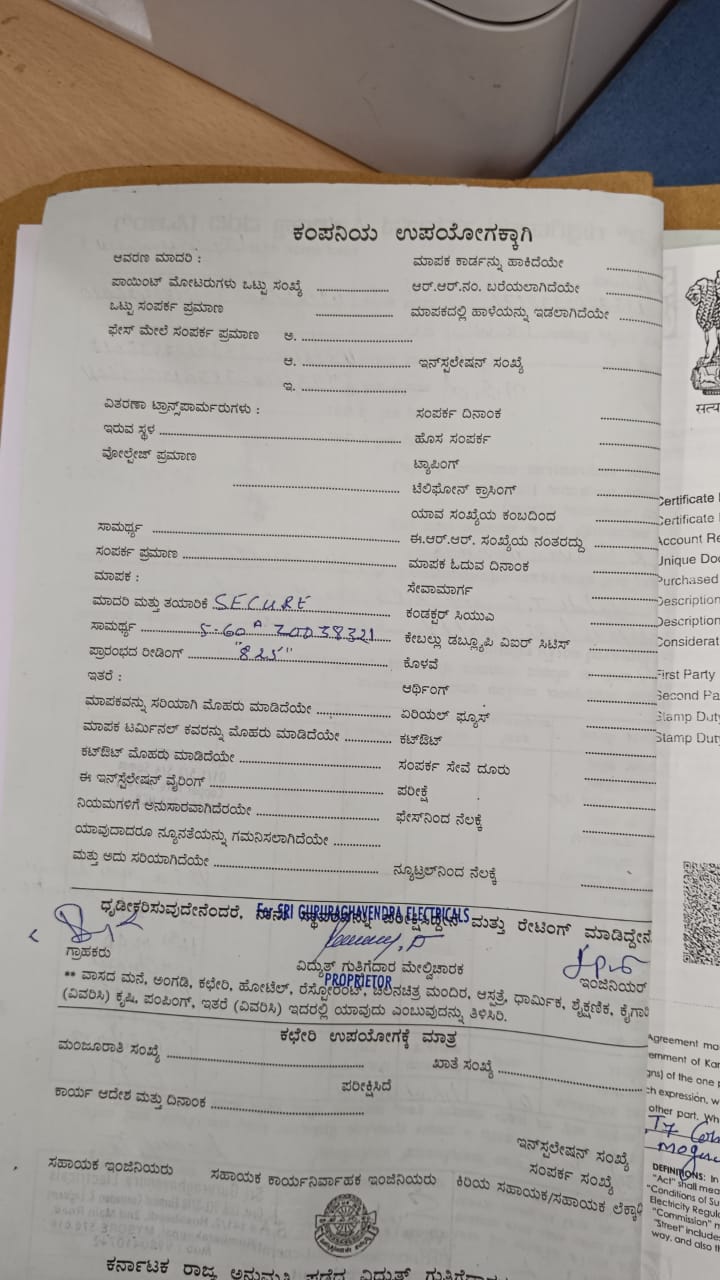 ಕಂಪನಿಯ ಉಪಯೋಗಕ್ಕಾಗಿ
ಆವರಣ ಮಾದರಿ :
ಮಾಪಕ ಕಾರ್ಡನ್ನು ಹಾಕಿದೆಯೇ ..............
ಪಾಯಿಂಟ್ ಮೋಟರುಗಳು ಒಟ್ಟು ಸಂಖ್ಯೆ ....................
ಆರ್.ಆರ್.ನಂ. ಬರೆಯಲಾಗಿದೆಯೇ ..............
ಒಟ್ಟು ಸಂಪರ್ಕ ಪ್ರಮಾಣ ....................
ಮಾಪಕದಲ್ಲಿ ಹಾಳೆಯನ್ನು ಇಡಲಾಗಿದೆಯೇ ..........
ಫೇಸ್ ಮೇಲೆ ಸಂಪರ್ಕ ಪ್ರಮಾಣ ಅ. ..............................
ಆ. ..............................
ಇನ್‌ಸ್ಟಲೇಷನ್ ಸಂಖ್ಯೆ ..............
ಇ. ..............................
ವಿತರಣಾ ಟ್ರಾನ್ಸ್‌ಪಾರ್ಮರುಗಳು :
ಸಂಪರ್ಕ ದಿನಾಂಕ ..............
ಇರುವ ಸ್ಥಳ ..............................
ಹೊಸ ಸಂಪರ್ಕ ..............
ವೋಲ್ಟೇಜ್ ಪ್ರಮಾಣ ..............................
ಟ್ಯಾಪಿಂಗ್ ..............
ಟೆಲಿಫೋನ್ ಕ್ರಾಸಿಂಗ್ ..............
ಯಾವ ಸಂಖ್ಯೆಯ ಕಂಬದಿಂದ ..............
ಸಾಮರ್ಥ್ಯ ..............................
ಈ.ಆರ್.ಆರ್. ಸಂಖ್ಯೆಯ ನಂತರದ್ದು ..............
ಸಂಪರ್ಕ ಪ್ರಮಾಣ ..............................
ಮಾಪಕ ಓದುವ ದಿನಾಂಕ ..............
ಮಾಪಕ :
ಸೇವಾಮಾರ್ಗ ..............
ಮಾದರಿ ಮತ್ತು ತಯಾರಿಕೆ SECURE
ಕಂಡಕ್ಟರ್ ಸಿಯುಎ ..............
ಸಾಮರ್ಥ್ಯ 5-60 A 20038321
ಕೇಬಲ್ಲು ಡಬ್ಲ್ಯೂಪಿ ವಿಐರ್ ಸಿಟಿಸ್ ..............
ಪ್ರಾರಂಭದ ರೀಡಿಂಗ್ "825"
ಕೊಳವೆ ..............
ಇತರೆ :
ಆರ್ಥಿಂಗ್ ..............
ಮಾಪಕವನ್ನು ಸರಿಯಾಗಿ ಮೊಹರು ಮಾಡಿದೆಯೇ ..............
ಏರಿಯಲ್ ಫ್ಯೂಸ್ ..............
ಮಾಪಕ ಟರ್ಮಿನಲ್ ಕವರನ್ನು ಮೊಹರು ಮಾಡಿದೆಯೇ ..............
ಕಟ್‌ಔಟ್ ..............
ಕಟ್‌ಔಟ್ ಮೊಹರು ಮಾಡಿದೆಯೇ ..............................
ಸಂಪರ್ಕ ಸೇವೆ ದೂರು ..............
ಈ ಇನ್‌ಸ್ಟೆಲೇಷನ್ ವೈರಿಂಗ್ ..............................
ಪರೀಕ್ಷೆ ..............
ನಿಯಮಗಳಿಗೆ ಅನುಸಾರವಾಗಿದೆರಯೇ ..............................
ಫೇಸ್‌ನಿಂದ ನೆಲಕ್ಕೆ ..............
ಯಾವುದಾದರೂ ನ್ಯೂನತೆಯನ್ನು ಗಮನಿಸಲಾಗಿದೆಯೇ ..............
ಮತ್ತು ಅದು ಸರಿಯಾಗಿದೆಯೇ ..............................
ನ್ಯೂಟ್ರಲ್‌ನಿಂದ ನೆಲಕ್ಕೆ ..............
ಧೃಡೀಕರಿಸುವುದೇನೆಂದರೆ, ನಾನು ಪರೀಕ್ಷಿಸಿದ್ದೇನೆ ಮತ್ತು ರೇಟಿಂಗ್ ಮಾಡಿದ್ದೇನೆ
For SRI GURURAGHAVENDRA ELECTRICALS
ಗ್ರಾಹಕರು
ವಿದ್ಯುತ್ ಗುತಿಗೆದಾರ ಮೇಲ್ವಿಚಾರಕ
ಇಂಜಿನಿಯರ್
PROPRIETOR
** ವಾಸದ ಮನೆ, ಅಂಗಡಿ, ಕಛೇರಿ, ಹೋಟೆಲ್, ರೆಸ್ಟೋರೆಂಟ್, ಚಲನಚಿತ್ರ ಮಂದಿರ, ಆಸ್ಪತ್ರೆ, ಧಾರ್ಮಿಕ, ಶೈಕ್ಷಣಿಕ,
(ವಿವರಿಸಿ) ಕೃಷಿ, ಪಂಪಿಂಗ್, ಇತರೆ (ವಿವರಿಸಿ) ಇದರಲ್ಲಿ ಯಾವುದು ಎಂಬುವುದನ್ನು ತಿಳಿಸಿರಿ.
ಕಛೇರಿ ಉಪಯೋಗಕ್ಕೆ ಮಾತ್ರ
ಮಂಜೂರಾತಿ ಸಂಖ್ಯೆ ..............................
ಖಾತೆ ಸಂಖ್ಯೆ ..............................
ಪರೀಕ್ಷಿಸಿದೆ
ಕಾರ್ಯ ಆದೇಶ ಮತ್ತು ದಿನಾಂಕ ..............................
ಇನ್‌ಸ್ಟಲೇಷನ್ ಸಂಖ್ಯೆ
ಸಂಪರ್ಕ ಸಂಖ್ಯೆ
ಸಹಾಯಕ ಇಂಜಿನಿಯರು
ಸಹಾಯಕ ಕಾರ್ಯನಿರ್ವಾಹಕ ಇಂಜಿನಿಯರು
ಕಿರಿಯ ಸಹಾಯಕ/ಸಹಾಯಕ
ಕರ್ನಾಟಕ ರಾಜ್ಯ ಅನುಮತಿ ಪಡೆದ ವಿದ್ಯುತ್
Certificate
Certificate
Account Re
Unique Doc
Purchased
Description
Description
Considerat
First Party
Second Pa
Stamp Duty
Stamp Duty
Agreement
of Kar
of the one
expression,
other part.
DEFINITIONS: In
"Act" shall mea
"Conditions of Su
Electricity Regul
"Commission" m
"Street" include
way, and also th